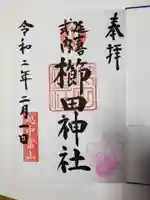 奉拝
延喜式内
櫛田神社
令和二年二月一日
越中富山